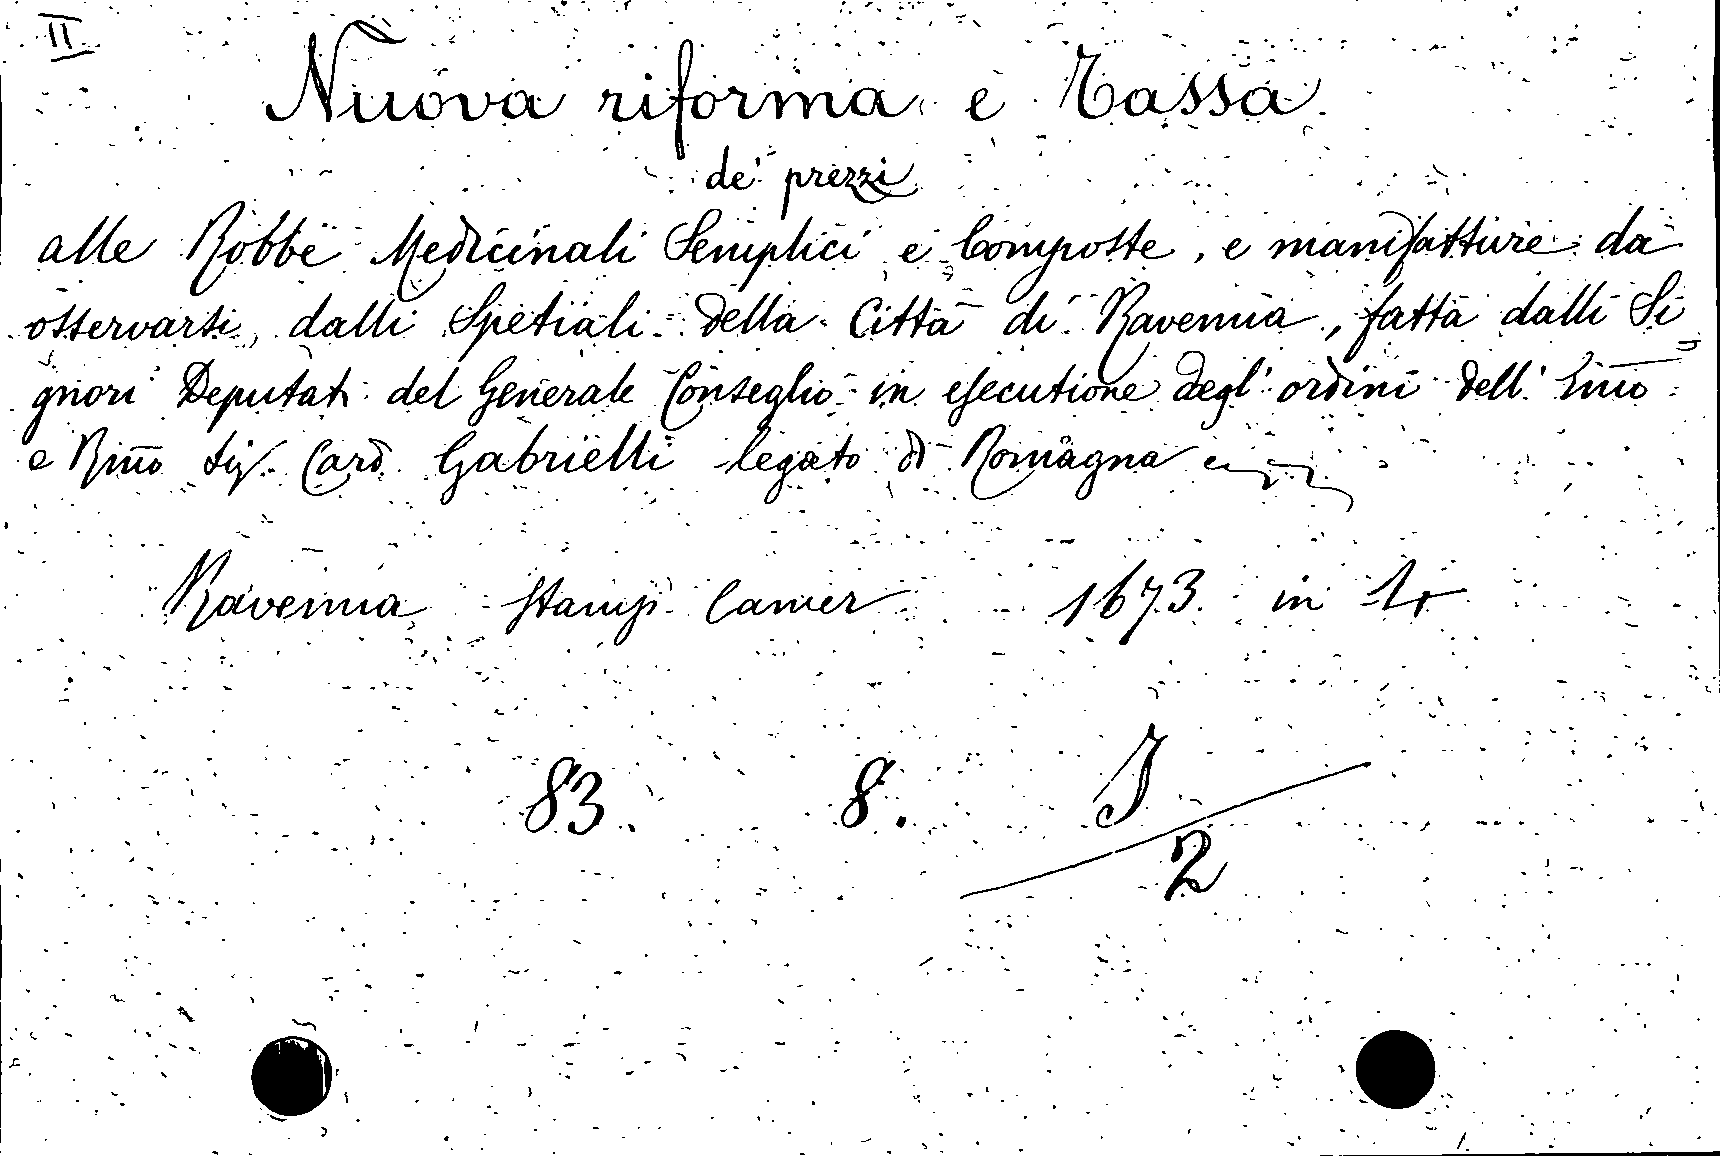 II
Nuova riforma e Tassa
de' prezzi
alle Robbe Medicinali Semplici e Composte, e manifatture da
osservarsi, dalli Spetiali della Città di Ravenna, fatta dalli Si
gnori Deputati del Generale Conseglio in essecutione degl' ordini dell' Em̅o
e Rm̅o Sig. Card. Gabrielli legato di Romagna
Ravenna Stamp. Camer 1673. in 4
83. 8. J
2